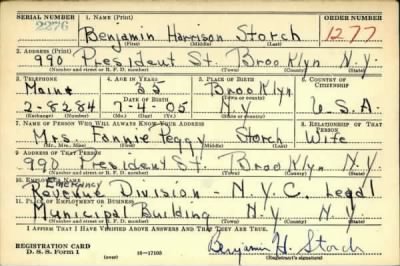 SERIAL NUMBER 1. NAME (Print) ORDER NUMBER
2276 Benjamin Harrison Storch 1277
(First) (Middle) (Last)
2. ADDRESS (Print)
990 President St. Brooklyn N.Y.
(Number and street or R. F. D. number) (Town) (County) (State)
3. TELEPHONE 4. AGE IN YEARS 5. PLACE OF BIRTH 6. COUNTRY OF CITIZENSHIP
Main 35 Brooklyn
DATE OF BIRTH (Town or county)
2-8284 7-4-05 N.Y. U.S.A.
(Exchange) (Number) (Mo.) (Day) (Yr.) (State or country)
7. NAME OF PERSON WHO WILL ALWAYS KNOW YOUR ADDRESS 8. RELATIONSHIP OF THAT PERSON
Mrs. Fannie Peggy Storch Wife
(Mr., Mrs., Miss) (First) (Middle) (Last)
9. ADDRESS OF THAT PERSON
990 President St. Brooklyn N.Y.
(Number and street or R. F. D. number) (Town) (County) (State)
10. EMPLOYER'S NAME
Emergency
Revenue Division - N.Y.C. Legal
11. PLACE OF EMPLOYMENT OR BUSINESS
Municipal Building N.Y. N.Y.
(Number and street or R. F. D. number) (Town) (County) (State)
I AFFIRM THAT I HAVE VERIFIED ABOVE ANSWERS AND THAT THEY ARE TRUE.
REGISTRATION CARD Benjamin H. Storch
D. S. S. Form 1 (over) 16-17105 (Registrant's signature)